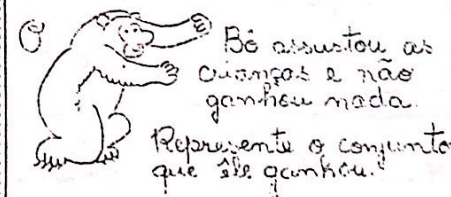 O
Bó assustou as
crianças e não
ganhou nada.
Represente o conjunto
que êle ganhou.